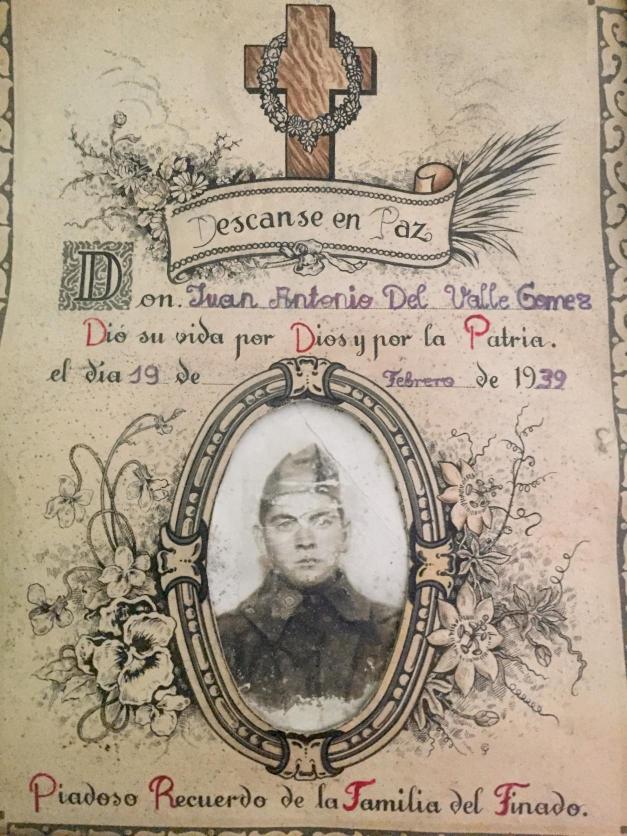 Descanse en Paz
Don. Juan Antonio Del Valle Gomez
Dio su vida por Dios y por la Patria.
el día 19 de Febrero de 1939
Piadoso Recuerdo de la Familia del Finado.